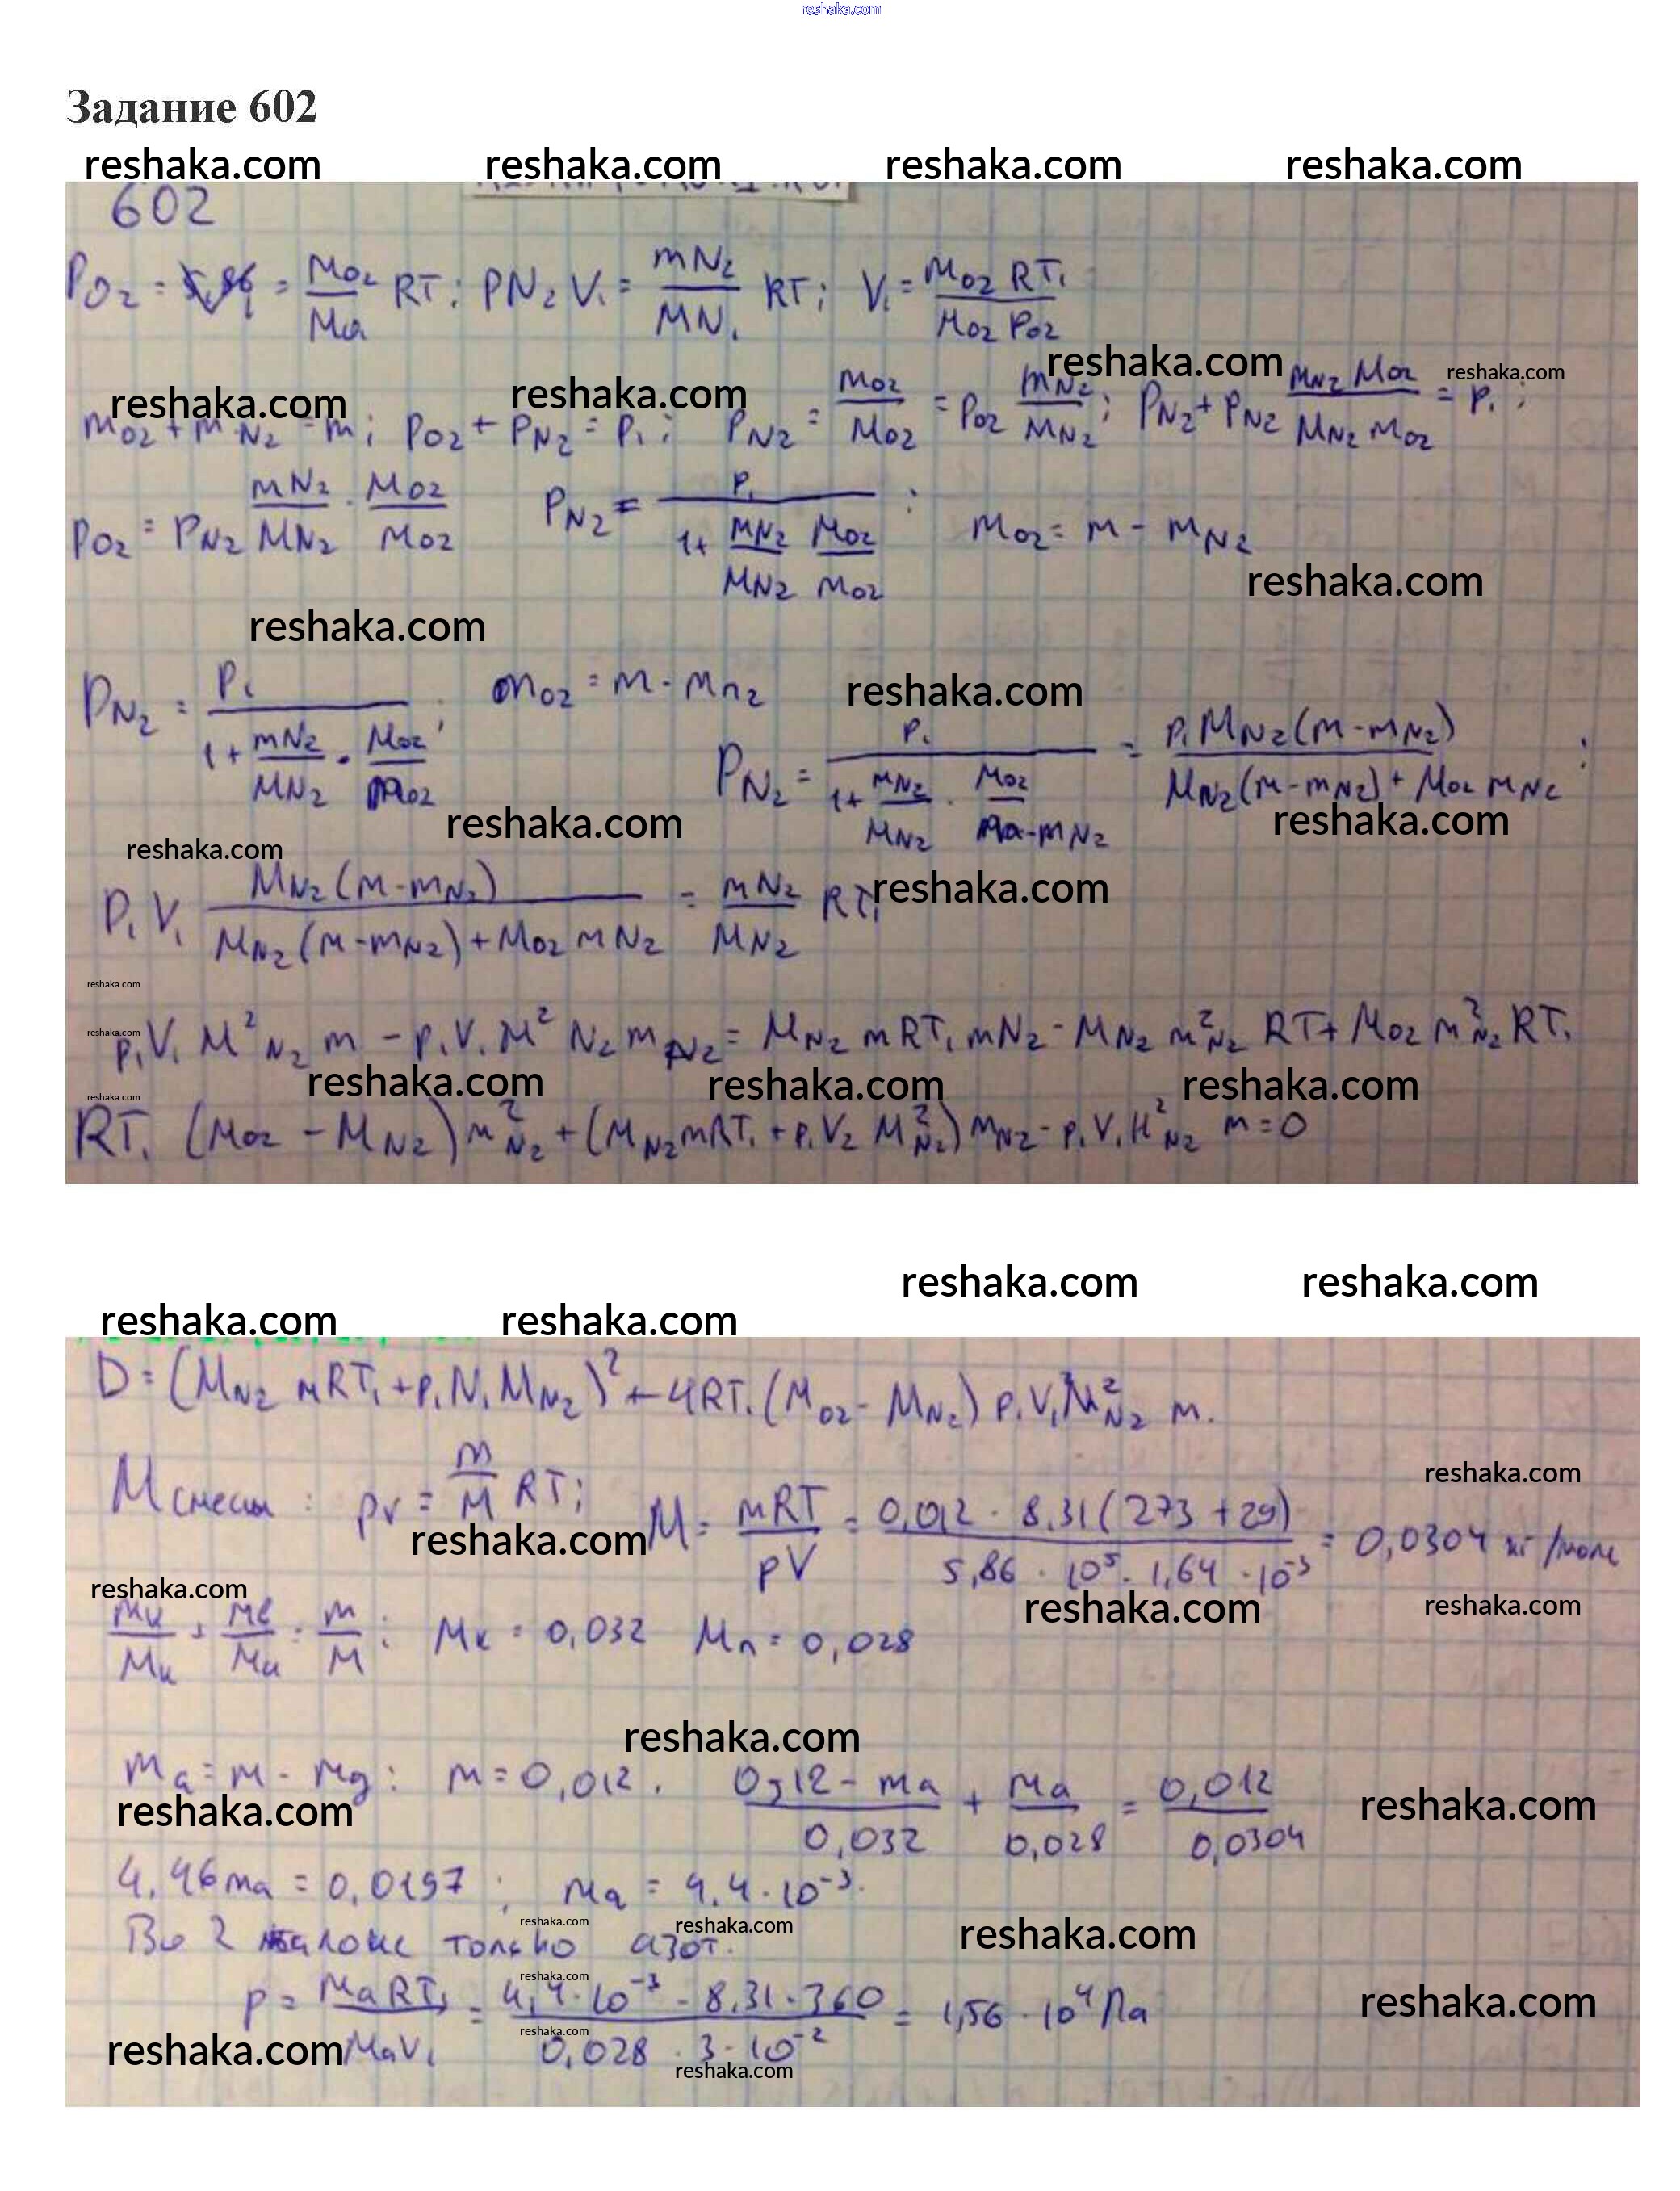 reshaka.com
Задание 602
reshaka.com reshaka.com reshaka.com reshaka.com
602
P O2 = = M O2 / Ma RT; PN2 V1 = mN2 / MN1 RT; V1 = M O2 RT1 / M O2 P O2
reshaka.com reshaka.com
reshaka.com reshaka.com
m O2 + m N2 = m; p O2 + p N2 = p1; P N2 = m O2 / M O2 = P O2 m N2 / M N2; P N2 + P N2 m N2 M O2 / M N2 m O2 = P1;
p O2 = P N2 m N2 / M N2 · M O2 / m O2 P N2 = P1 / 1+ m N2 / M N2 M O2 / m O2; m O2 = m - m N2
reshaka.com
reshaka.com
P N2 = P1 / 1+ m N2 / M N2 · M O2 / m O2; m O2 = m - m n2 reshaka.com
P N2 = P1 / 1+ m N2 / M N2 · M O2 / m - m N2 = P1 M N2 (m - m N2) / M N2 (m - m N2) + M O2 m N2;
reshaka.com reshaka.com
reshaka.com
reshaka.com
P1 V1 M N2 (m - m N2) / M N2 (m - m N2) + M O2 m N2 = m N2 / M N2 RT1
reshaka.com
reshaka.com
p1 V1 M² N2 m - p1 V1 M² N2 m N2 = M N2 m RT1 m N2 - M N2 m² N2 RT + M O2 m² N2 RT1
reshaka.com reshaka.com reshaka.com
reshaka.com
RT1 (M O2 - M N2) m² N2 + (M N2 m RT1 + p1 V2 M² N2) m N2 - p1 V1 M² N2 m = 0
reshaka.com reshaka.com
reshaka.com reshaka.com
D = (M N2 m RT1 + p1 N1 M N2)² + 4RT1 (M O2 - M N2) p1 V1 M² N2 m.
reshaka.com
M смеси: pv = m / M RT; M = mRT / pV = 0,012 · 8,31 (273 + 29) / 5,86 · 10⁵ · 1,64 · 10⁻³ = 0,0304 кг/моль
reshaka.com
reshaka.com reshaka.com reshaka.com
+ = m / M; Mк = 0,032 Mп = 0,028
reshaka.com
ma = m - mg: m = 0,012. 0,12 - ma / 0,032 + ma / 0,028 = 0,012 / 0,0304
reshaka.com reshaka.com
4,46 ma = 0,0197; ma = 4.4 · 10⁻³.
reshaka.com reshaka.com reshaka.com
Во 2 только азот.
reshaka.com
p = Ma RT1 / Ma V1 = 4,4 · 10⁻³ · 8,31 · 360 / 0,028 · 3 · 10⁻² = 1,56 · 10⁴ Па
reshaka.com
reshaka.com reshaka.com
reshaka.com